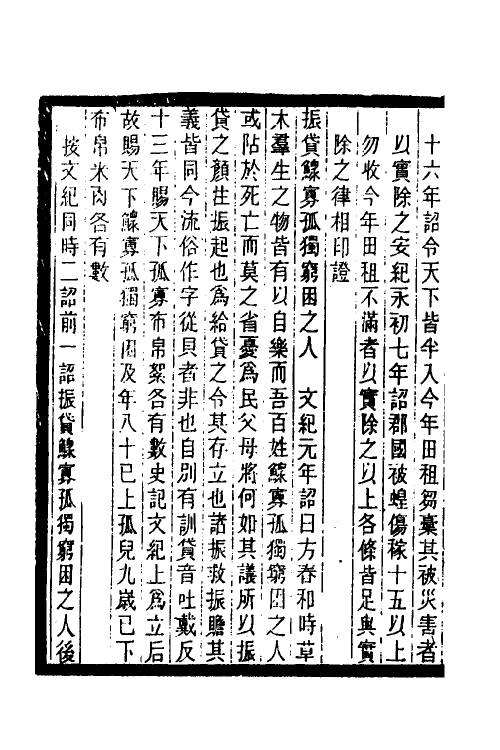 十六年詔令天下皆半入今年田租芻稾其被災害者
以實除之安紀永初七年詔郡國被蝗傷稼十五以上
勿收今年田租不滿者以實除之以上各條皆足與實
除之律相印證
振貸鰥寡孤獨窮困之人　文紀元年詔曰方春和時草
木羣生之物皆有以自樂而吾百姓鰥寡孤獨窮困之人
或阽於死亡而莫之省憂爲民父母將何如其議所以振
貸之顏注振起也爲給貸之令其存立也諸振救振贍其
義皆同今流俗作字從貝者非也自別有訓貸音吐戴反
十三年賜天下孤寡布帛絮各有數史記文紀上爲立后
故賜天下鰥寡孤獨窮困及年八十已上孤兒九歲已下
布帛米肉各有數
按文紀同時二詔前一詔振貸鰥寡孤獨窮困之人後